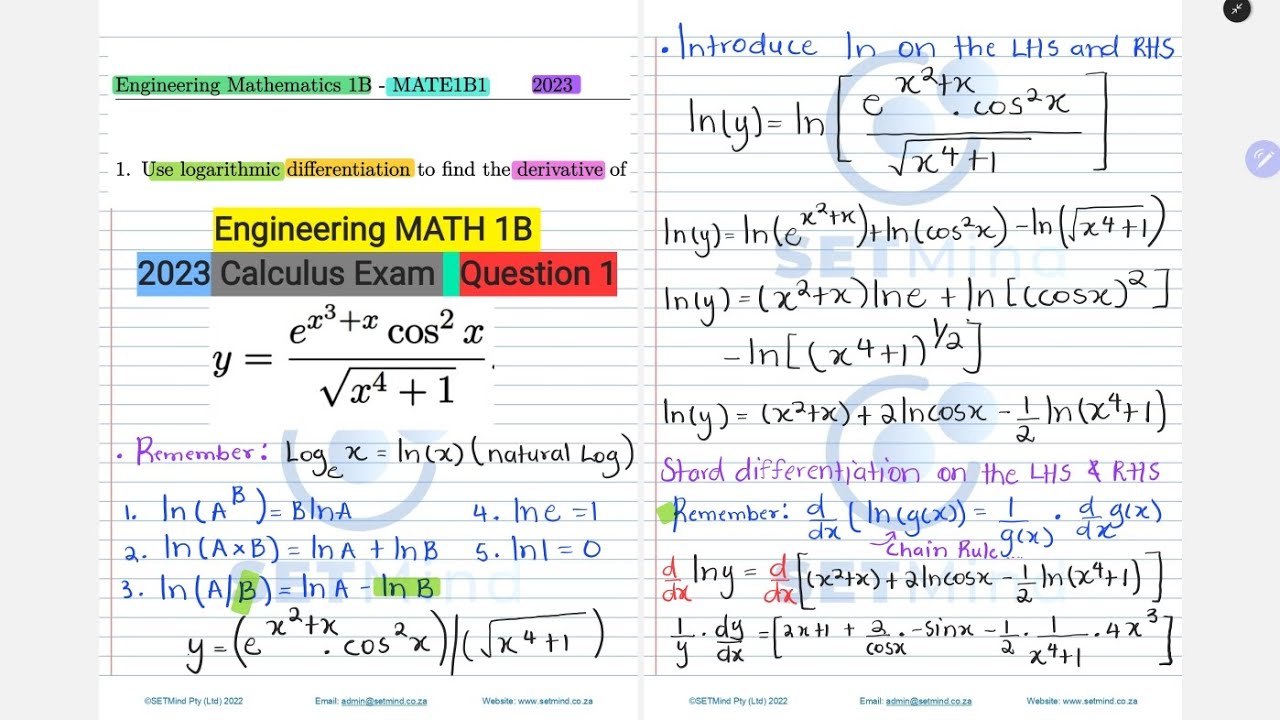 Engineering Mathematics 1B - MATE1B1 2023
1. Use logarithmic differentiation to find the derivative of
Engineering MATH 1B
2023 Calculus Exam Question 1
y = e^{x³+x} cos² x / √(x⁴ + 1) .
• Remember: Log_e x = ln(x) (natural Log)
1. ln(A^B) = B lnA 4. ln e = 1
2. ln(A×B) = lnA + lnB 5. ln1 = 0
3. ln(A/B) = lnA - lnB
y = (e^{x²+x} . cos²x) / (√(x⁴+1))
©SETMind Pty (Ltd) 2022 Email: admin@setmind.co.za Website: www.setmind.co.za
• Introduce ln on the LHS and RHS
ln(y) = ln [ e^{x²+x} . cos²x / √(x⁴+1) ]
ln(y) = ln(e^{x²+x}) + ln(cos²x) - ln(√(x⁴+1))
ln(y) = (x²+x) ln e + ln[(cosx)²]
- ln[(x⁴+1)^{1/2}]
ln(y) = (x²+x) + 2lncosx - 1/2 ln(x⁴+1)
Stard differentiation on the LHS & RHS
Remember: d/dx (ln(g(x)) = 1/g(x) . d/dx g(x)
Chain Rule...
d/dx lny = d/dx [(x²+x) + 2lncosx - 1/2 ln(x⁴+1)]
1/y . dy/dx = [2x+1 + 2/cosx . -sinx - 1/2 . 1/x⁴+1 . 4x³]
©SETMind Pty (Ltd) 2022 Email: admin@setmind.co.za Website: www.setmind.co.za
SETMind
SETMind